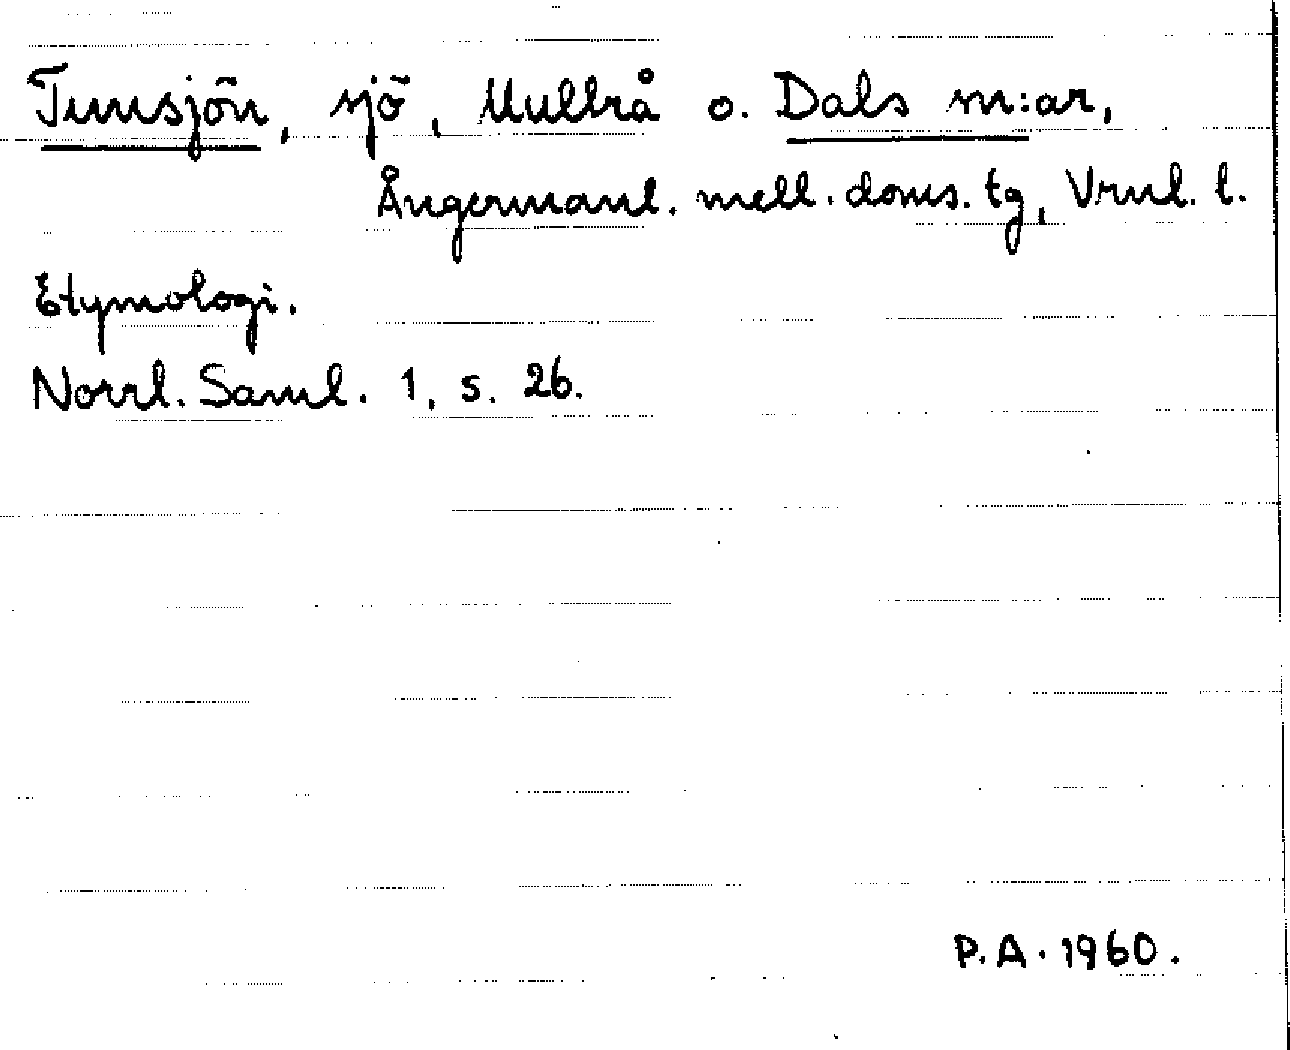 Tunsjön, sjö, Multrå o. Dals m:ar,
Ångermanl. mell. doms. tg, Vrnl. l.
Etymologi.
Norrl. Saml. 1, s. 26.
P.A. 1960.